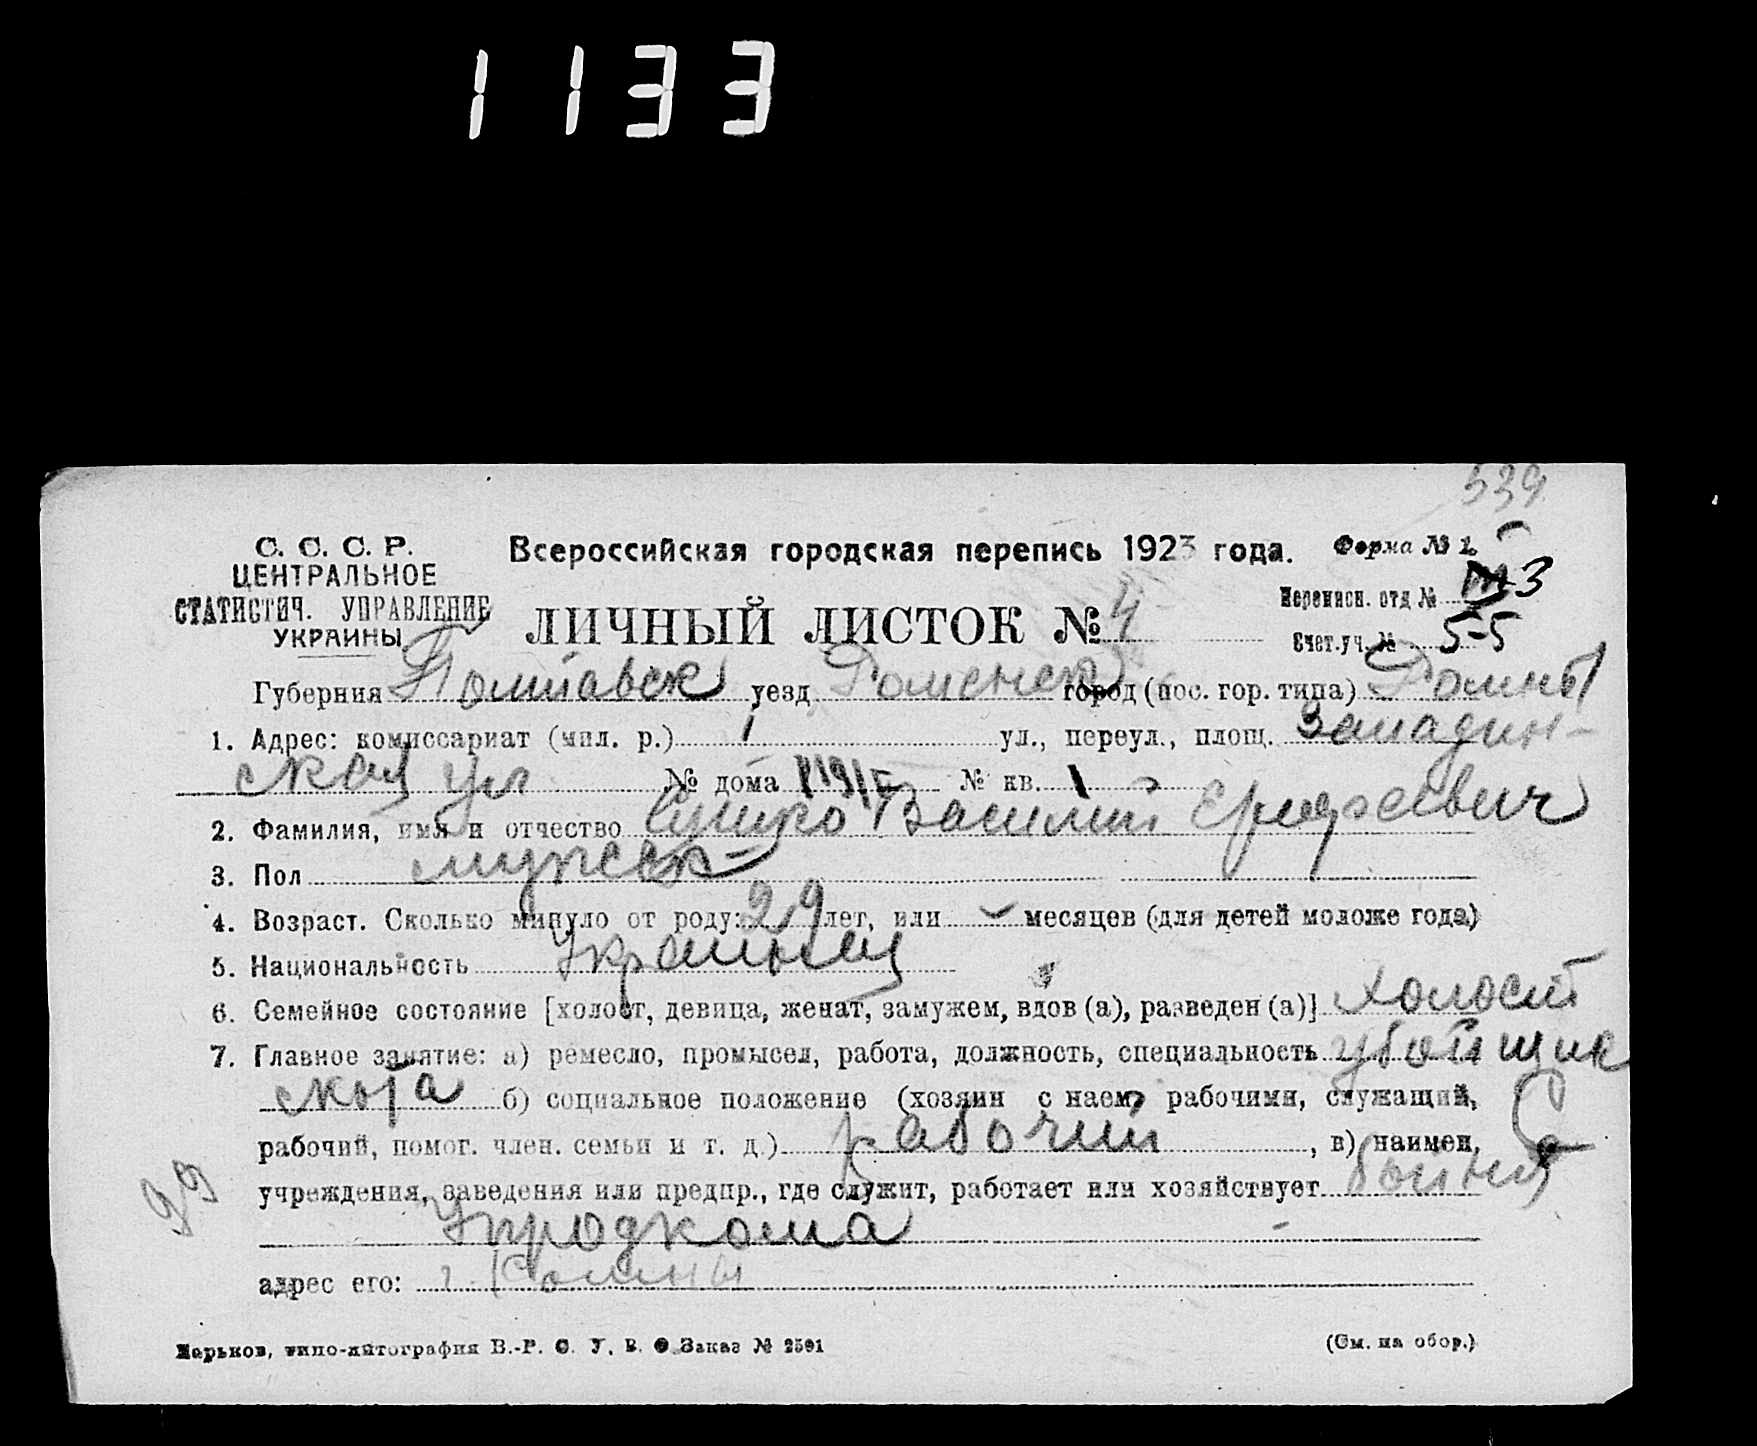 1133
539
С. С. С. Р.
ЦЕНТРАЛЬНОЕ
СТАТИСТИЧ. УПРАВЛЕНИЕ
УКРАИНЫ
Всероссийская городская перепись 1923 года.
Форма № 1.
ЛИЧНЫЙ ЛИСТОК № 4
Переписн. отд № 3
Счет.уч. № 5-5
Губерния Полтавск уезд Роменск город (пос. гор. типа) Ромны
1. Адрес: комиссариат (мил. р.) 1 ул., переул., площ. Западин-
ская ул № дома № кв. 1
2. Фамилия, имя и отчество Василий
3. Пол мужск-
4. Возраст. Сколько минуло от роду: 29 лет, или - месяцев (для детей моложе года)
5. Национальность Украинец
6. Семейное состояние [холост, девица, женат, замужем, вдов (а), разведен (а)] холост
7. Главное занятие: а) ремесло, промысел, работа, должность, специальность убойщик
скота б) социальное положение (хозяин с наем. рабочими, служащий,
рабочий, помог. член. семьи и т. д.) рабочий, в) наимен,
учреждения, заведения или предпр., где служит, работает или хозяйствует бойня
Упродкома
адрес его: г. Ромны
99
Харьков, типо-литография В.-Р. С. У. В. О. Заказ № 2591
(См. на обор.)